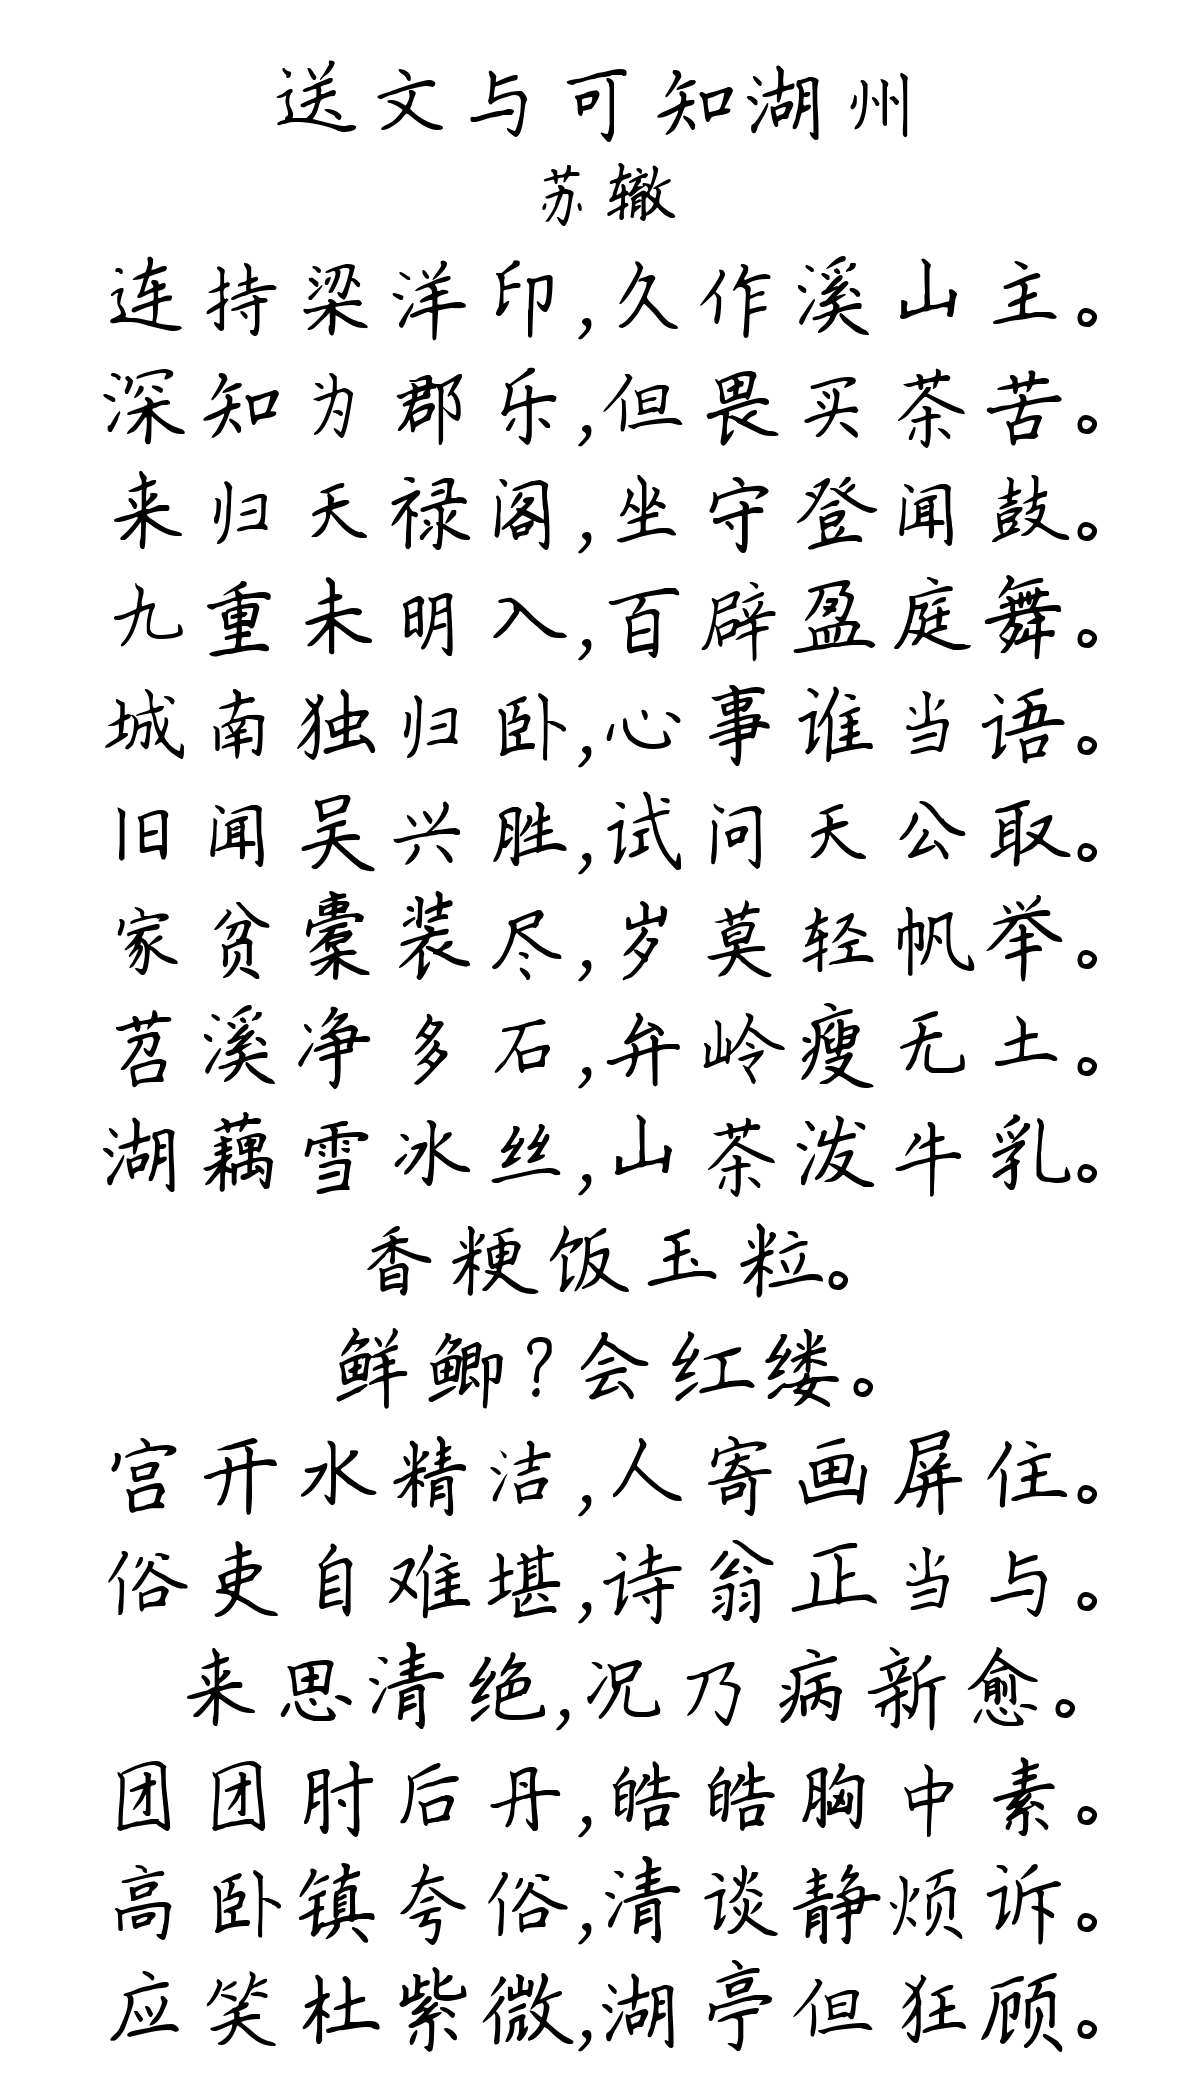 送文与可知湖州
苏辙
连持梁洋印,久作溪山主。
深知为郡乐,但畏买茶苦。
来归天禄阁,坐守登闻鼓。
九重未明入,百辟盈庭舞。
城南独归卧,心事谁当语。
旧闻吴兴胜,试问天公取。
家贫橐装尽,岁莫轻帆举。
苕溪净多石,弁岭瘦无土。
湖藕雪冰丝,山茶泼牛乳。
香粳饭玉粒。
鲜鲫?会红缕。
宫开水精洁,人寄画屏住。
俗吏自难堪,诗翁正当与。
来思清绝,况乃病新愈。
团团肘后丹,皓皓胸中素。
高卧镇夸俗,清谈静烦诉。
应笑杜紫微,湖亭但狂顾。